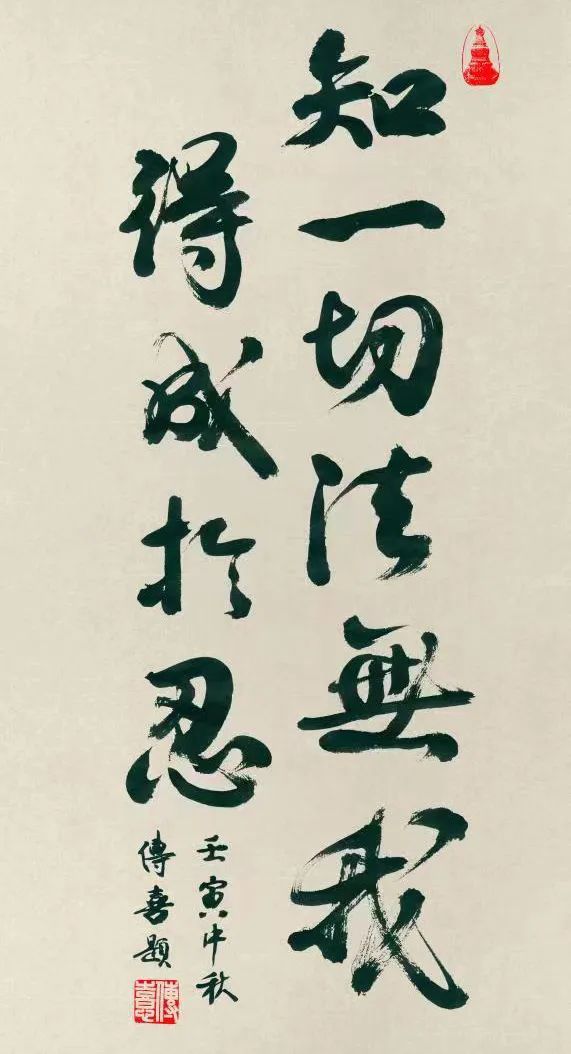 知一切法無我
得成於忍
壬寅中秋
傳喜題
傳喜